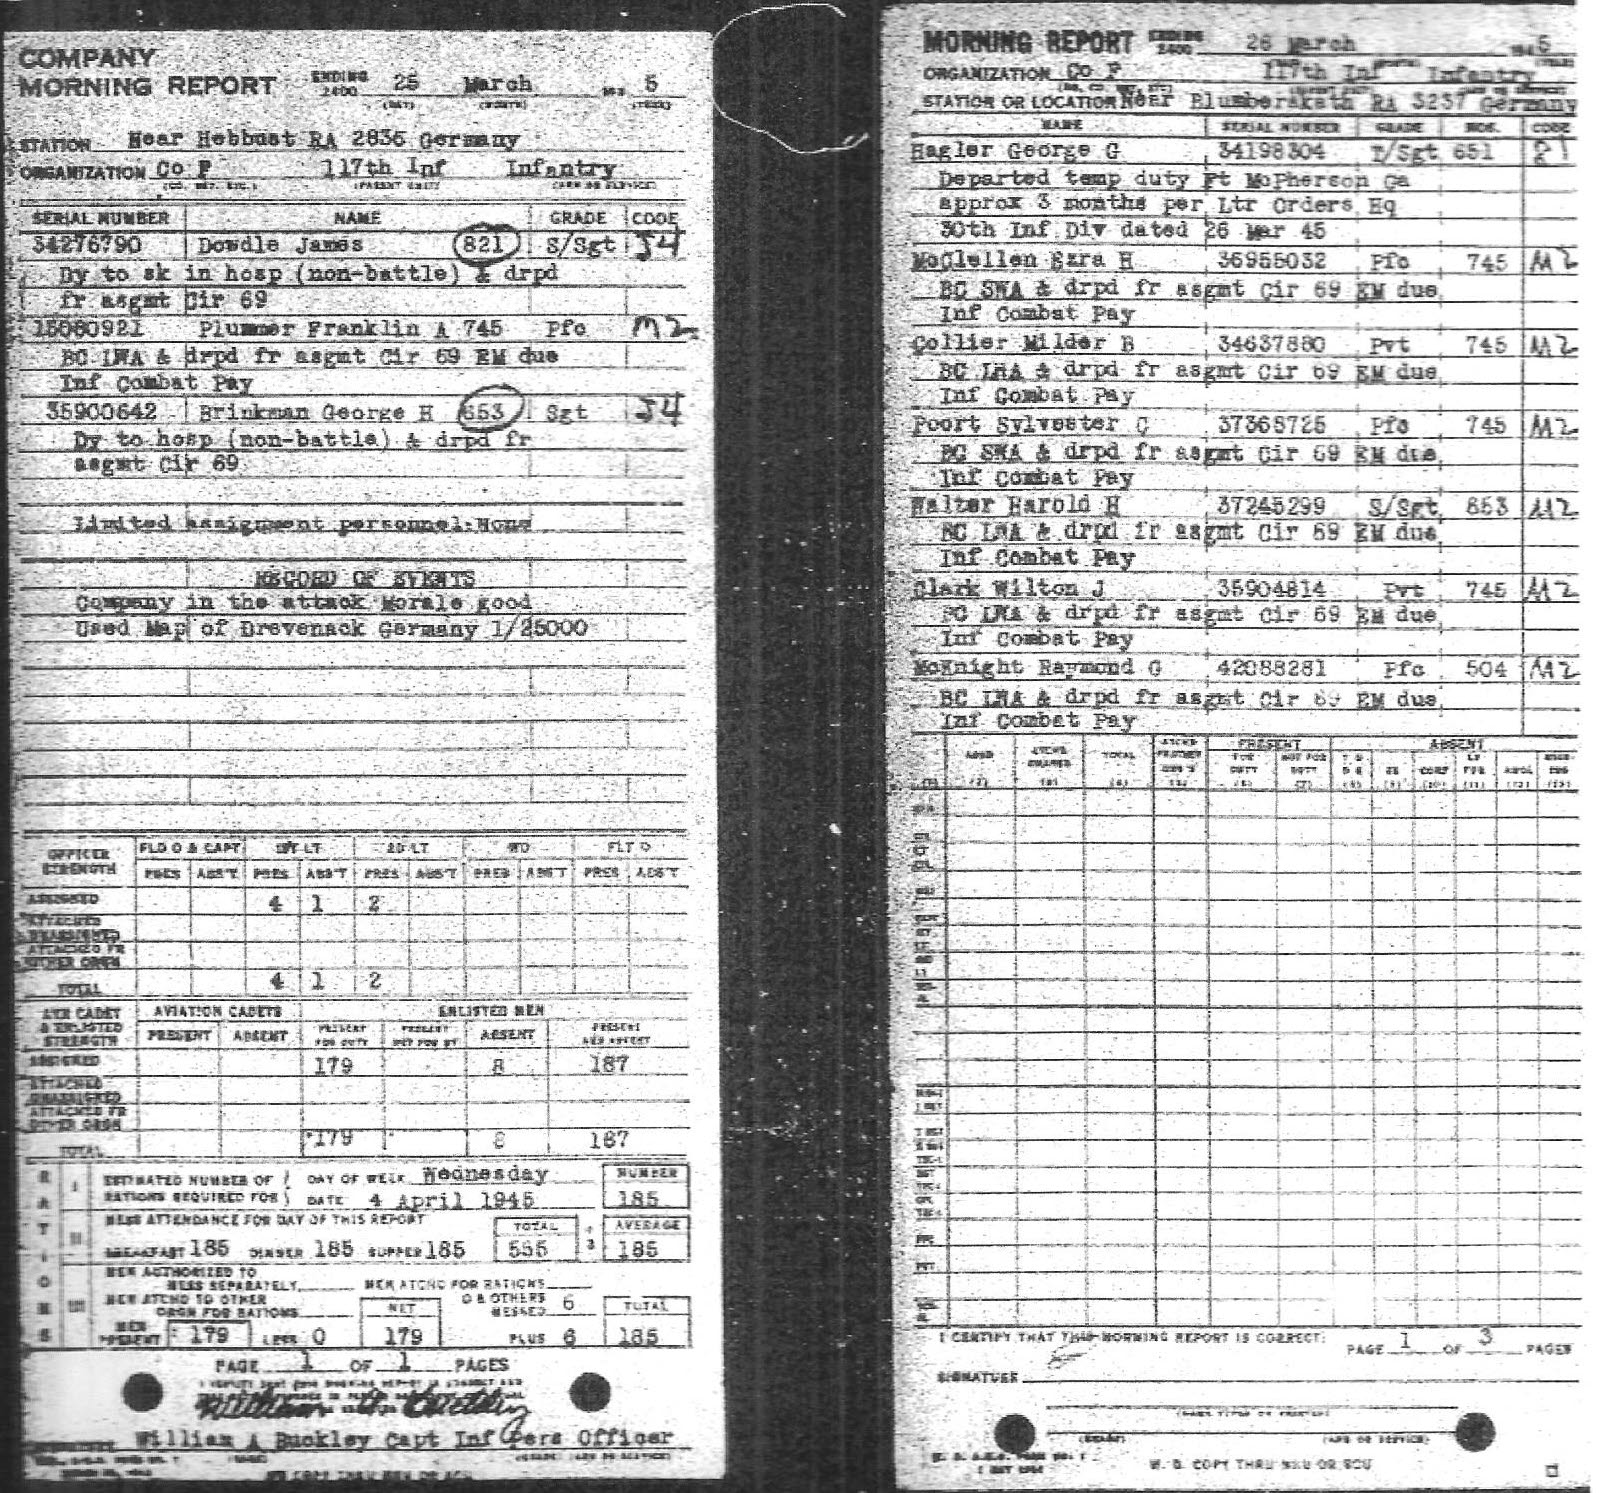 COMPANY
MORNING REPORT ENDING 2400 25 March 194 5
(DAY) (MONTH) (YEAR)
STATION Near Hebbust RA 2836 Germany
ORGANIZATION Co F 117th Inf Infantry
(CO, DET, ETC.) (PARENT UNIT) (ARM OR SERVICE)
SERIAL NUMBER NAME GRADE CODE
34276790 Dowdle James 821 S/Sgt J4
Dy to sk in hosp (non-battle) & drpd
fr asgmt Cir 69
15080921 Plummer Franklin A 745 Pfc M2
BC LWA & drpd fr asgmt Cir 69 EM due
Inf Combat Pay
35900642 Brinkman George H 653 Sgt J4
Dy to hosp (non-battle) & drpd fr
asgmt Cir 69
Limited assignment personnel: None
RECORD OF EVENTS
Company in the attack Morale good
Used Map of Drevenack Germany 1/25000
OFFICER STRENGTH FLD O & CAPT 1ST LT 2D LT WO FLT O
PRES ABS'T PRES ABS'T PRES ABS'T PRES ABS'T PRES ABS'T
ASSIGNED 4 1 2
ATTACHED UNASSIGNED
ATTACHED FR OTHER ORGN
TOTAL 4 1 2
AVN CADET & ENLISTED STRENGTH AVIATION CADETS ENLISTED MEN
PRESENT ABSENT PRESENT FOR DUTY PRESENT NOT FOR DY ABSENT PRESENT AND ABSENT
ASSIGNED 179 8 187
ATTACHED UNASSIGNED
ATTACHED FR OTHER ORGN
TOTAL 179 8 187
RATIONS
I ESTIMATED NUMBER OF RATIONS REQUIRED FOR DAY OF WEEK Wednesday NUMBER
DATE 4 April 1945 185
II MESS ATTENDANCE FOR DAY OF THIS REPORT TOTAL AVERAGE
BREAKFAST 185 DINNER 185 SUPPER 185 555 ÷ 3 185
III MEN AUTHORIZED TO MESS SEPARATELY MEN ATCHD FOR RATIONS
MEN ATCHD TO OTHER ORGN FOR RATIONS NET O & OTHERS MESSED 6 TOTAL
MEN PRESENT 179 LESS 0 179 PLUS 6 185
PAGE 1 OF 1 PAGES
William A Buckley
William A Buckley Capt Inf Pers Officer
MORNING REPORT ENDING 2400 26 March 194 5
ORGANIZATION Co F 117th Inf Infantry
STATION OR LOCATION Near RA 3237 Germany
NAME SERIAL NUMBER GRADE MOS. CODE
Hagler George G 34198304 T/Sgt 651 21
Departed temp duty Ft McPherson Ga
approx 3 months per Ltr Orders Hq
30th Inf Div dated 26 Mar 45
McClellen Ezra H 36955032 Pfc 745 M2
BC SWA & drpd fr asgmt Cir 69 EM due
Inf Combat Pay
Collier Milder B 34637880 Pvt 745 M2
BC LWA & drpd fr asgmt Cir 69 EM due
Inf Combat Pay
Poort Sylvester C 37368725 Pfc 745 M2
BC SWA & drpd fr asgmt Cir 69 EM due
Inf Combat Pay
Walter Harold H 37245299 S/Sgt 653 M2
BC LWA & drpd fr asgmt Cir 69 EM due
Inf Combat Pay
Clark Wilton J 35904814 Pvt 745 M2
BC LWA & drpd fr asgmt Cir 69 EM due
Inf Combat Pay
McKnight Raymond G 42088281 Pfc 504 M2
BC LWA & drpd fr asgmt Cir 69 EM due
Inf Combat Pay
PRESENT ABSENT
ASGD TOTAL FOR DUTY NOT FOR DUTY SK CONF AWOL
I CERTIFY THAT THIS MORNING REPORT IS CORRECT:
PAGE 1 OF 3 PAGES
SIGNATURE
(NAME TYPED OR PRINTED)
(GRADE) (ARM OR SERVICE)
W. D. COPY THRU MRU OR SCU